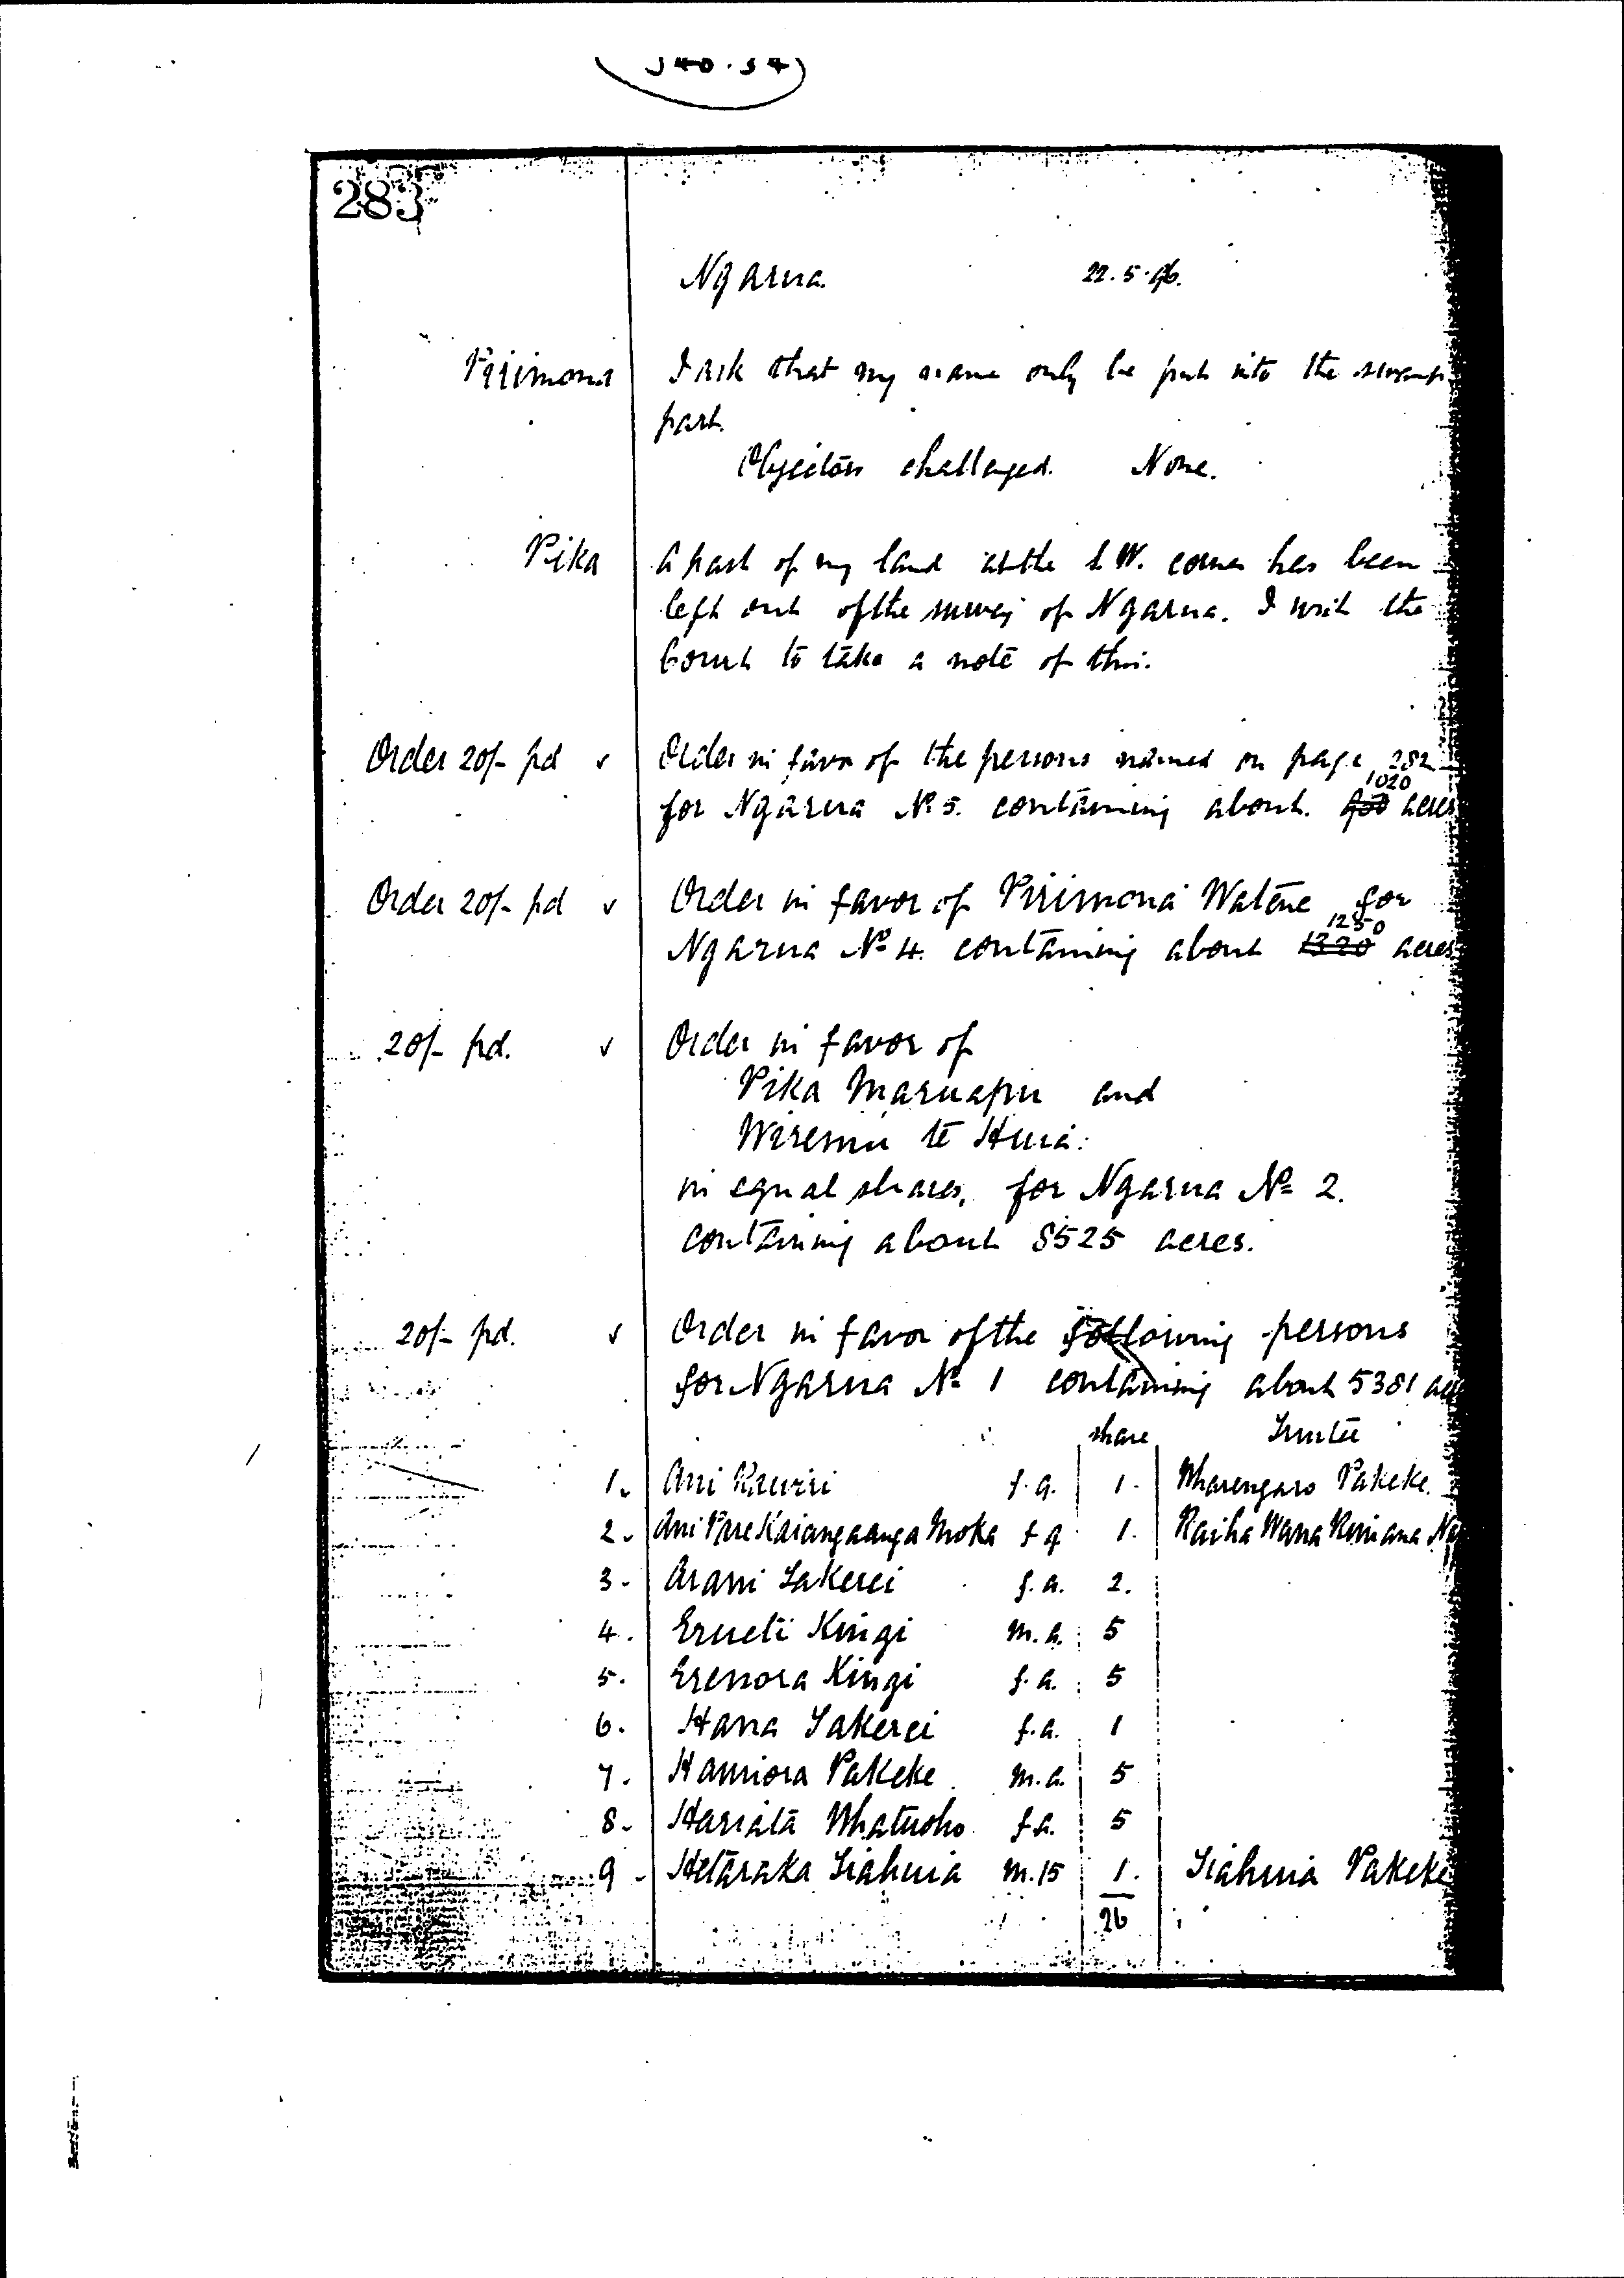 340.34
283
Ngarua. 22.5.96.
Pirimona I ask that my name only be put into the swamp
part.
Objectors challenged. None.
Pika A part of my land at the S.W. corner has been
left out of the survey of Ngarua. I wish the
Court to take a note of this.
Order 20/- pd v Order in favor of the persons named on page 282
1020
for Ngarua No 5. containing about. 900 acres
Order 20/- pd v Order in favor of Pirimona Watene for
1250
Ngarua No 4. containing about 1320 acres
20/- pd. v Order in favor of
Pika Maruapu and
Wiremu te Huia:
in equal shares, for Ngarua No 2.
containing about 8525 acres.
20/- pd. v Order in favor of the following persons
for Ngarua No 1 containing about 5381
share Trustee
1. Ani Rawiri f. 9. 1. Wharengaro Pakeke.
2. Ani Pare Kaiangaanga Moka f 9 1. Raiha Wana
3. Arani Takerei f.a. 2.
4. Erueti Kingi m.a. 5
5. Erenora Kingi f.a. 5
6. Hana Takerei f.a. 1
7. Hamiora Pakeke m.a. 5
8. Hariata Whatuoho f.a. 5
9. Hetaraka Tiahuia m.15 1. Tiahuia Pakeke
26